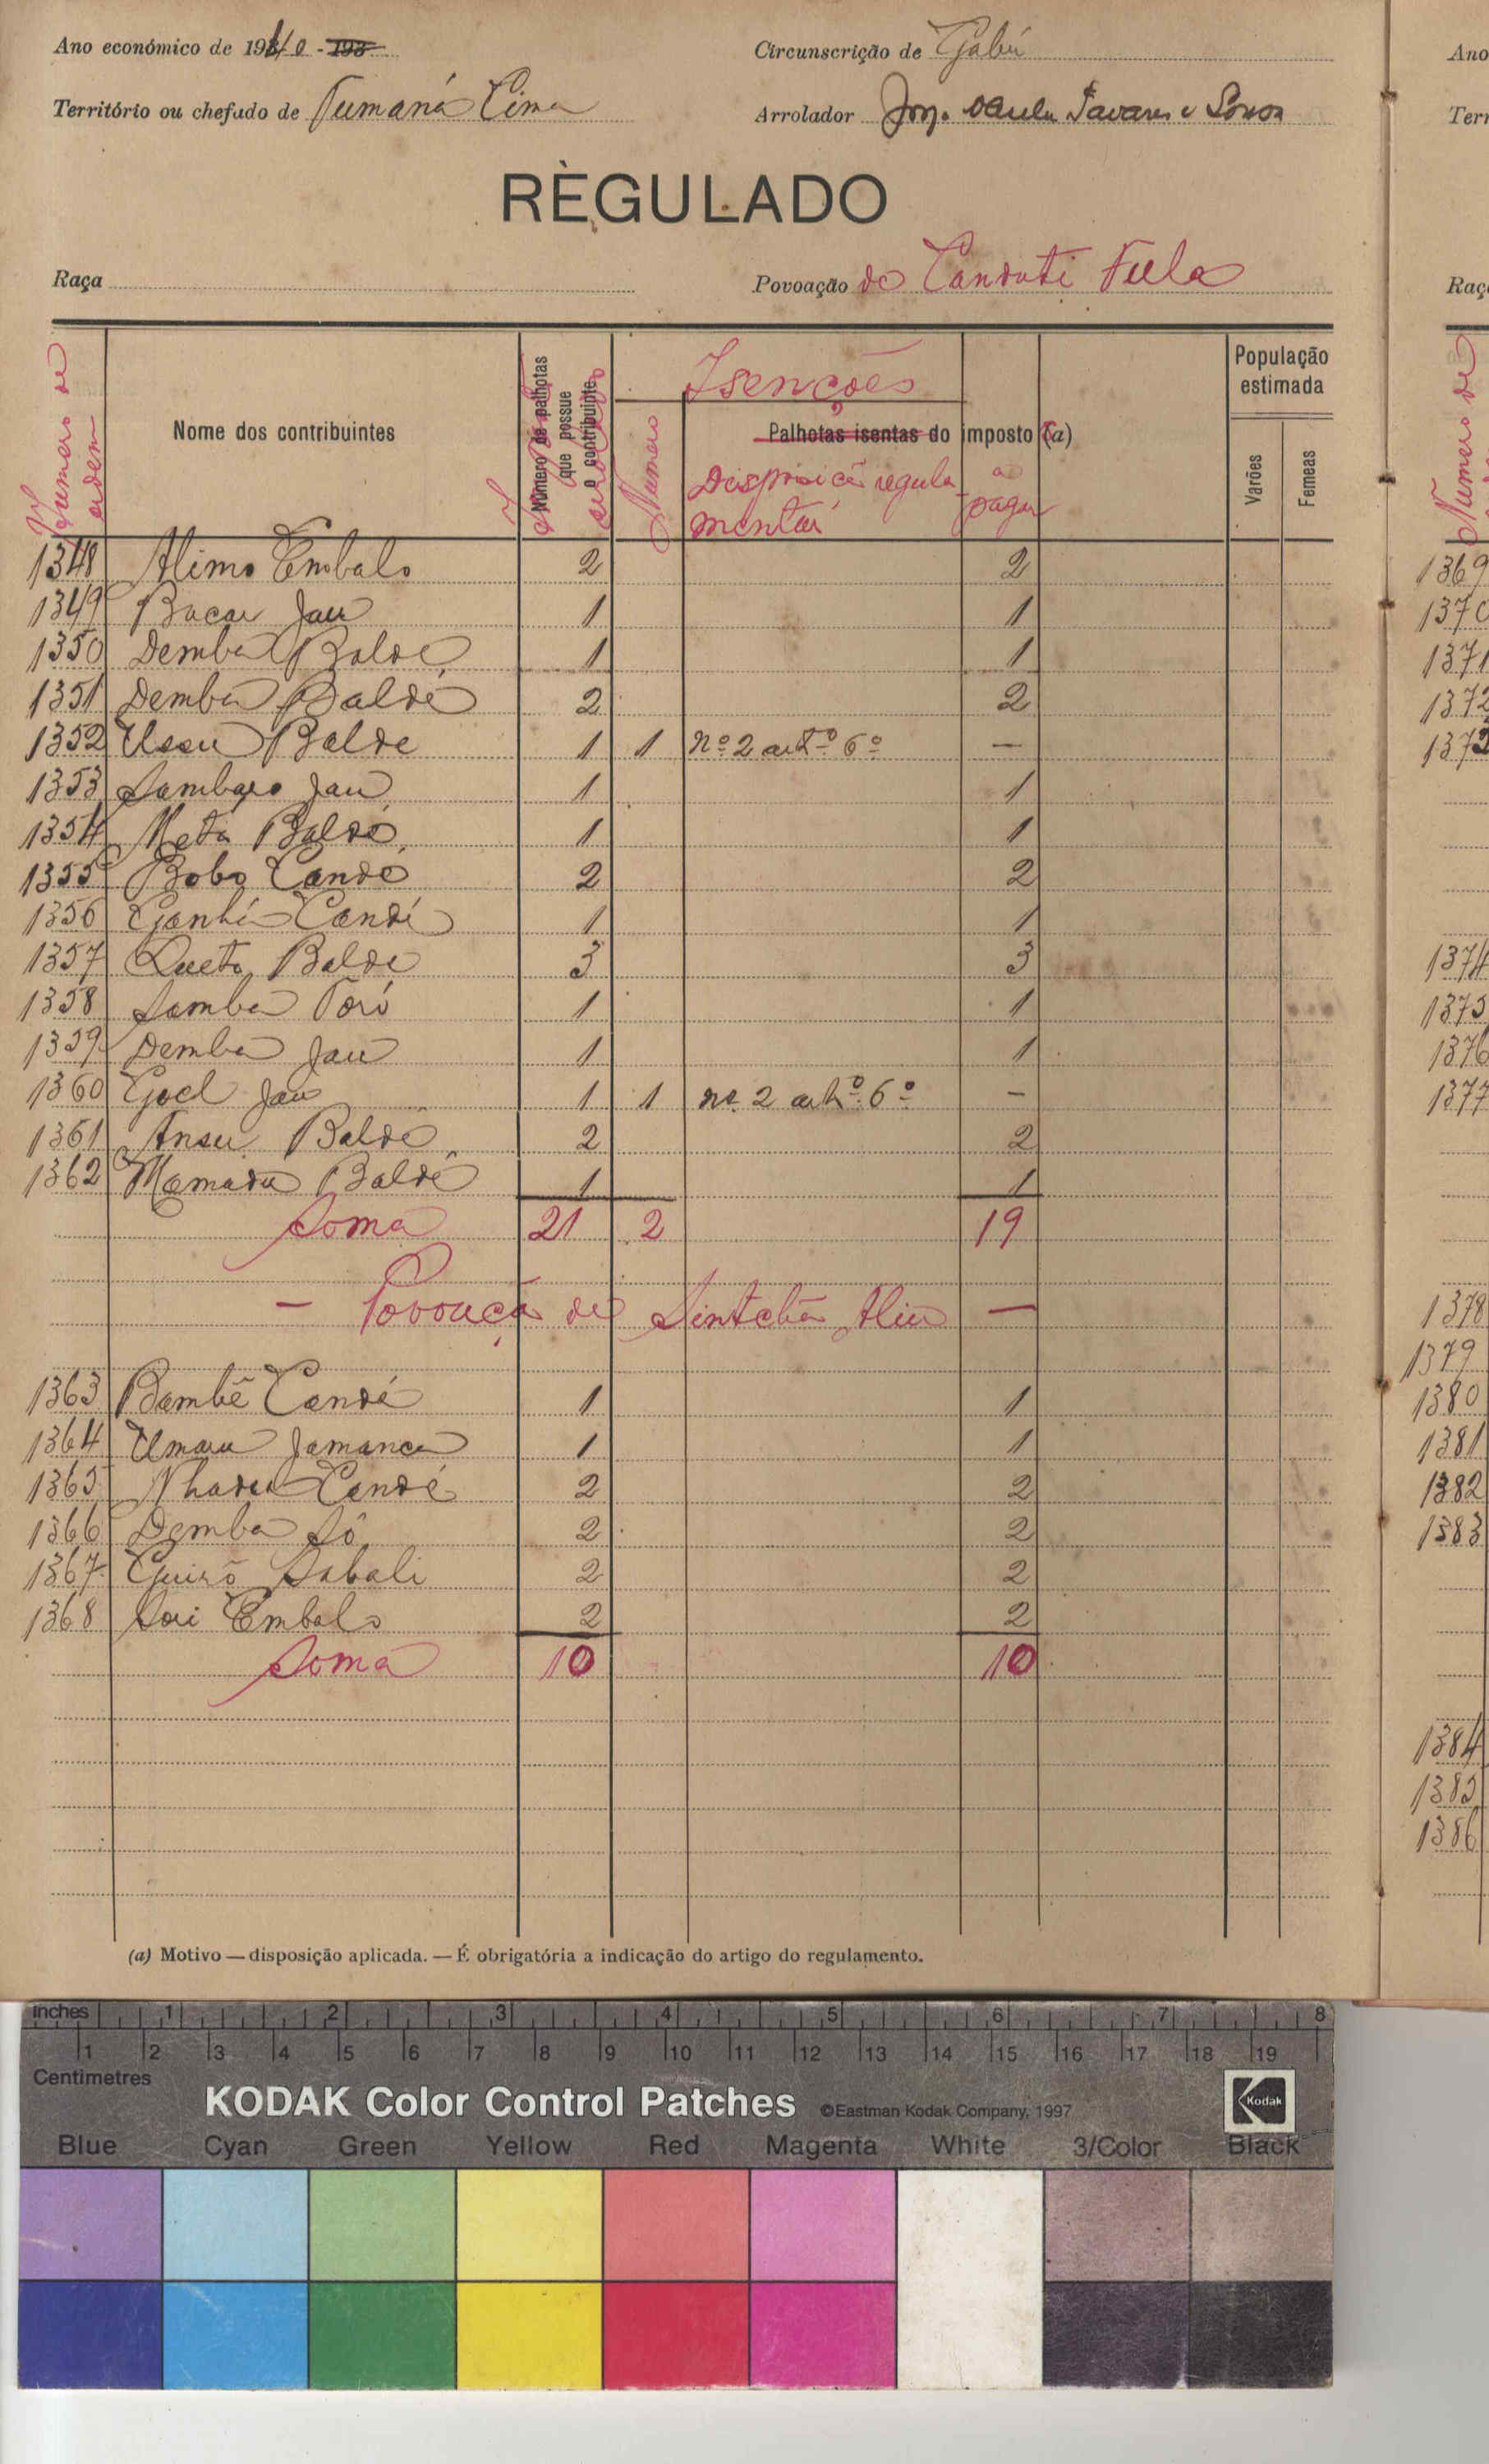 Ano económico de 1940 - 193
Circunscrição de Gabú
Território ou chefado de Tumaná Cima
Arrolador Tavares e Sousa
RÈGULADO
Raça
Povoação de Canduti Fula
Numero de ordem
Nome dos contribuintes
Número de palhotas que possue o contribuinte
Isenções
Numero
Palhotas isentas do imposto (a)
Disposição regula-
mentar
a pagar
População estimada
Varões
Femeas
1348 Alimo Embalo 2 2
1349 Bacar Jau 1 1
1350 Demba Baldé 1 1
1351 Demba Baldé 2 2
1352 Ussu Balde 1 1 nº 2 artº 6º —
1353 Sambaro Jau 1 1
1354 Neta Baldé 1 1
1355 Bobo Candé 2 2
1356 Candé 1 1
1357 Queta Balde 3 3
1358 Samba Tori 1 1
1359 Demba Jau 1 1
1360 Jau 1 1 nº 2 artº 6º -
1361 Ansu Baldé 2 2
1362 Mamadu Baldé 1 1
Soma 21 2 19
— Povoaçã de Sintchã Aliu —
1363 Bambé Candé 1 1
1364 Umaru Jamanca 1 1
1365 Nhadu Candé 2 2
1366 Demba Só 2 2
1367 Sabali 2 2
1368 Sori Embalo 2 2
Soma 10 10
(a) Motivo — disposição aplicada. — É obrigatória a indicação do artigo do regulamento.
Ano
Terr
Raç
Numero de
1369
1370
1371
1372
1373
1374
1375
1376
1377
1378
1379
1380
1381
1382
1383
1384
1385
1386
inches 1 2 3 4 5 6 7 8
1 2 3 4 5 6 7 8 9 10 11 12 13 14 15 16 17 18 19
Centimetres
KODAK Color Control Patches ©Eastman Kodak Company, 1997 Kodak
Blue Cyan Green Yellow Red Magenta White 3/Color Black